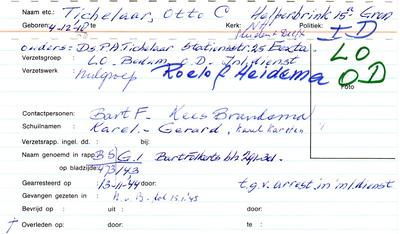 Naam etc.: Tichelaar, Otto C Helperbrink 15a Gron.
Geboren: 4-12-18 Kerk: N.H. Politiek: ID
student Delft
ouders: Ds. P.A. Tichelaar Stationsstr. 25 Eexta LO
Verzetsgroep : LO - Bedum O.D. Inl. dienst OD
Verzetswerk : hulpgroep Roelof Heidema
Foto
Contactpersonen: Bart F. - Kees Brandsma
Schuilnamen : Karel. - Gerard, Karel Karsten
Verzetsrapp. ingel. dd. : bij:
Naam genoemd in rapp. B5 G.1 Bart Folkerts blz 241-301.
op bladzijde 473/143
Gearresteerd op : 13-11-'44 door: t.g.v. arrest. in inl. dienst
Gevangen gezeten in : H.v.B. tot 15.1.'45
Bevrijd op : uit : door:
† Overleden op: door: te :